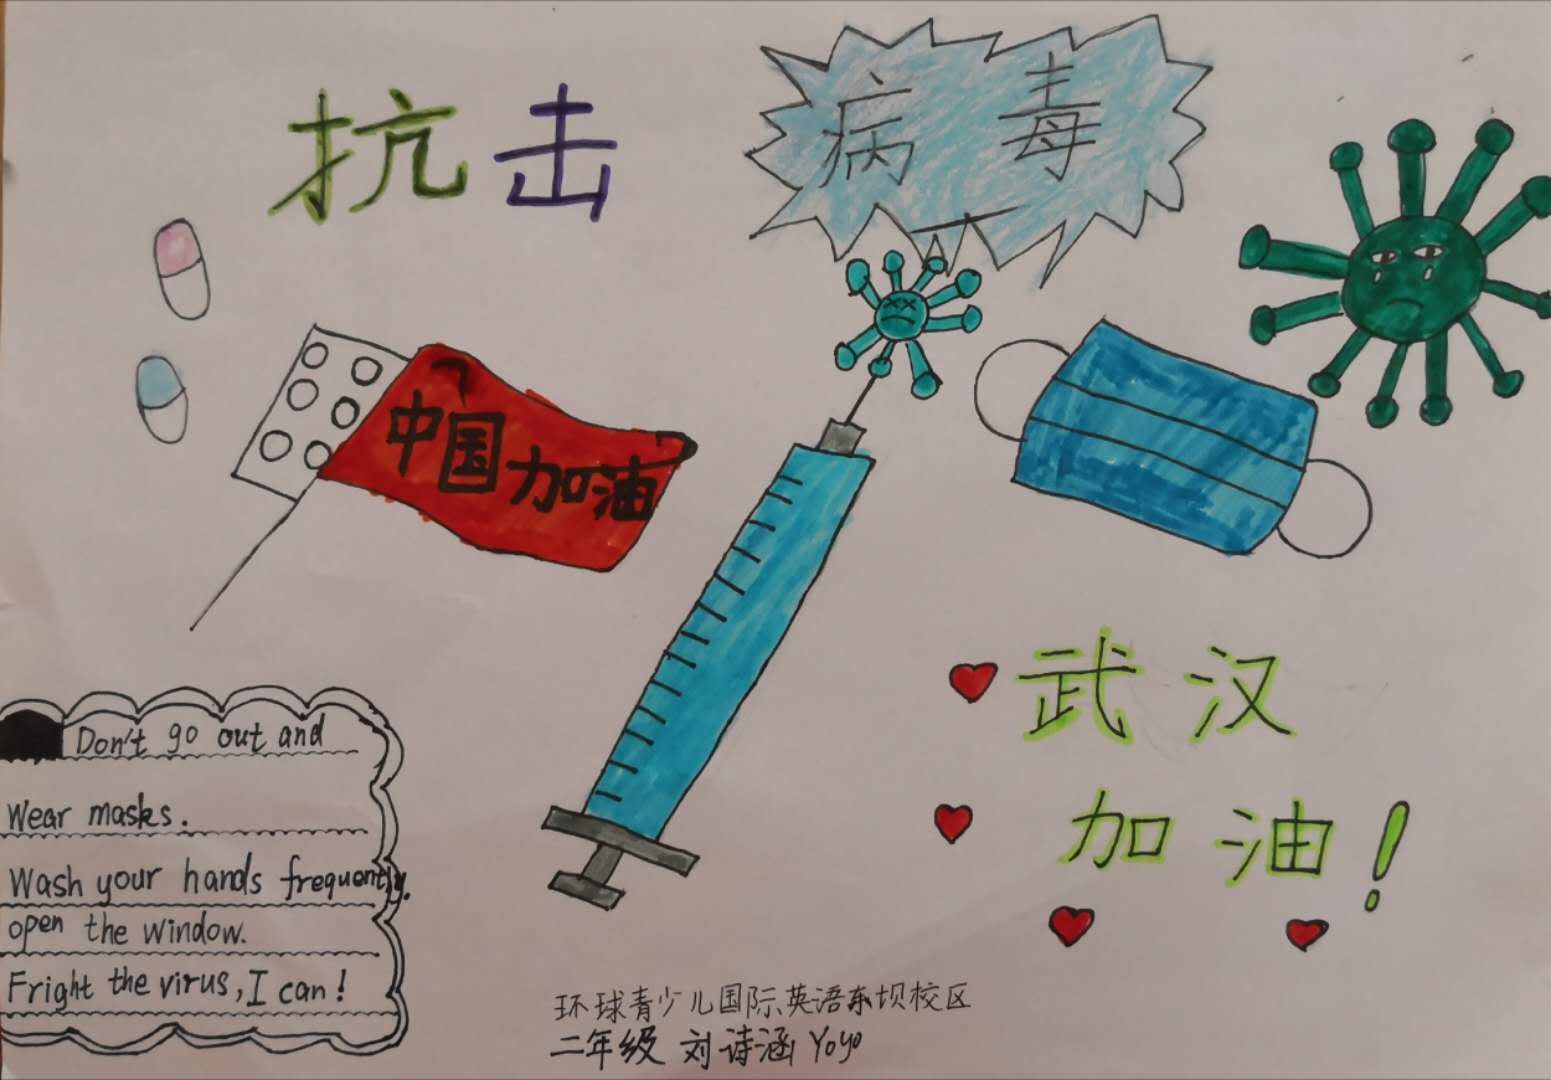 抗击
病毒
中国加油
武汉
加油!
Don't go out and
Wear masks.
Wash your hands frequently.
open the window.
Fright the virus, I can!
环球青少儿国际英语东坝校区
二年级 刘诗涵 Yoyo